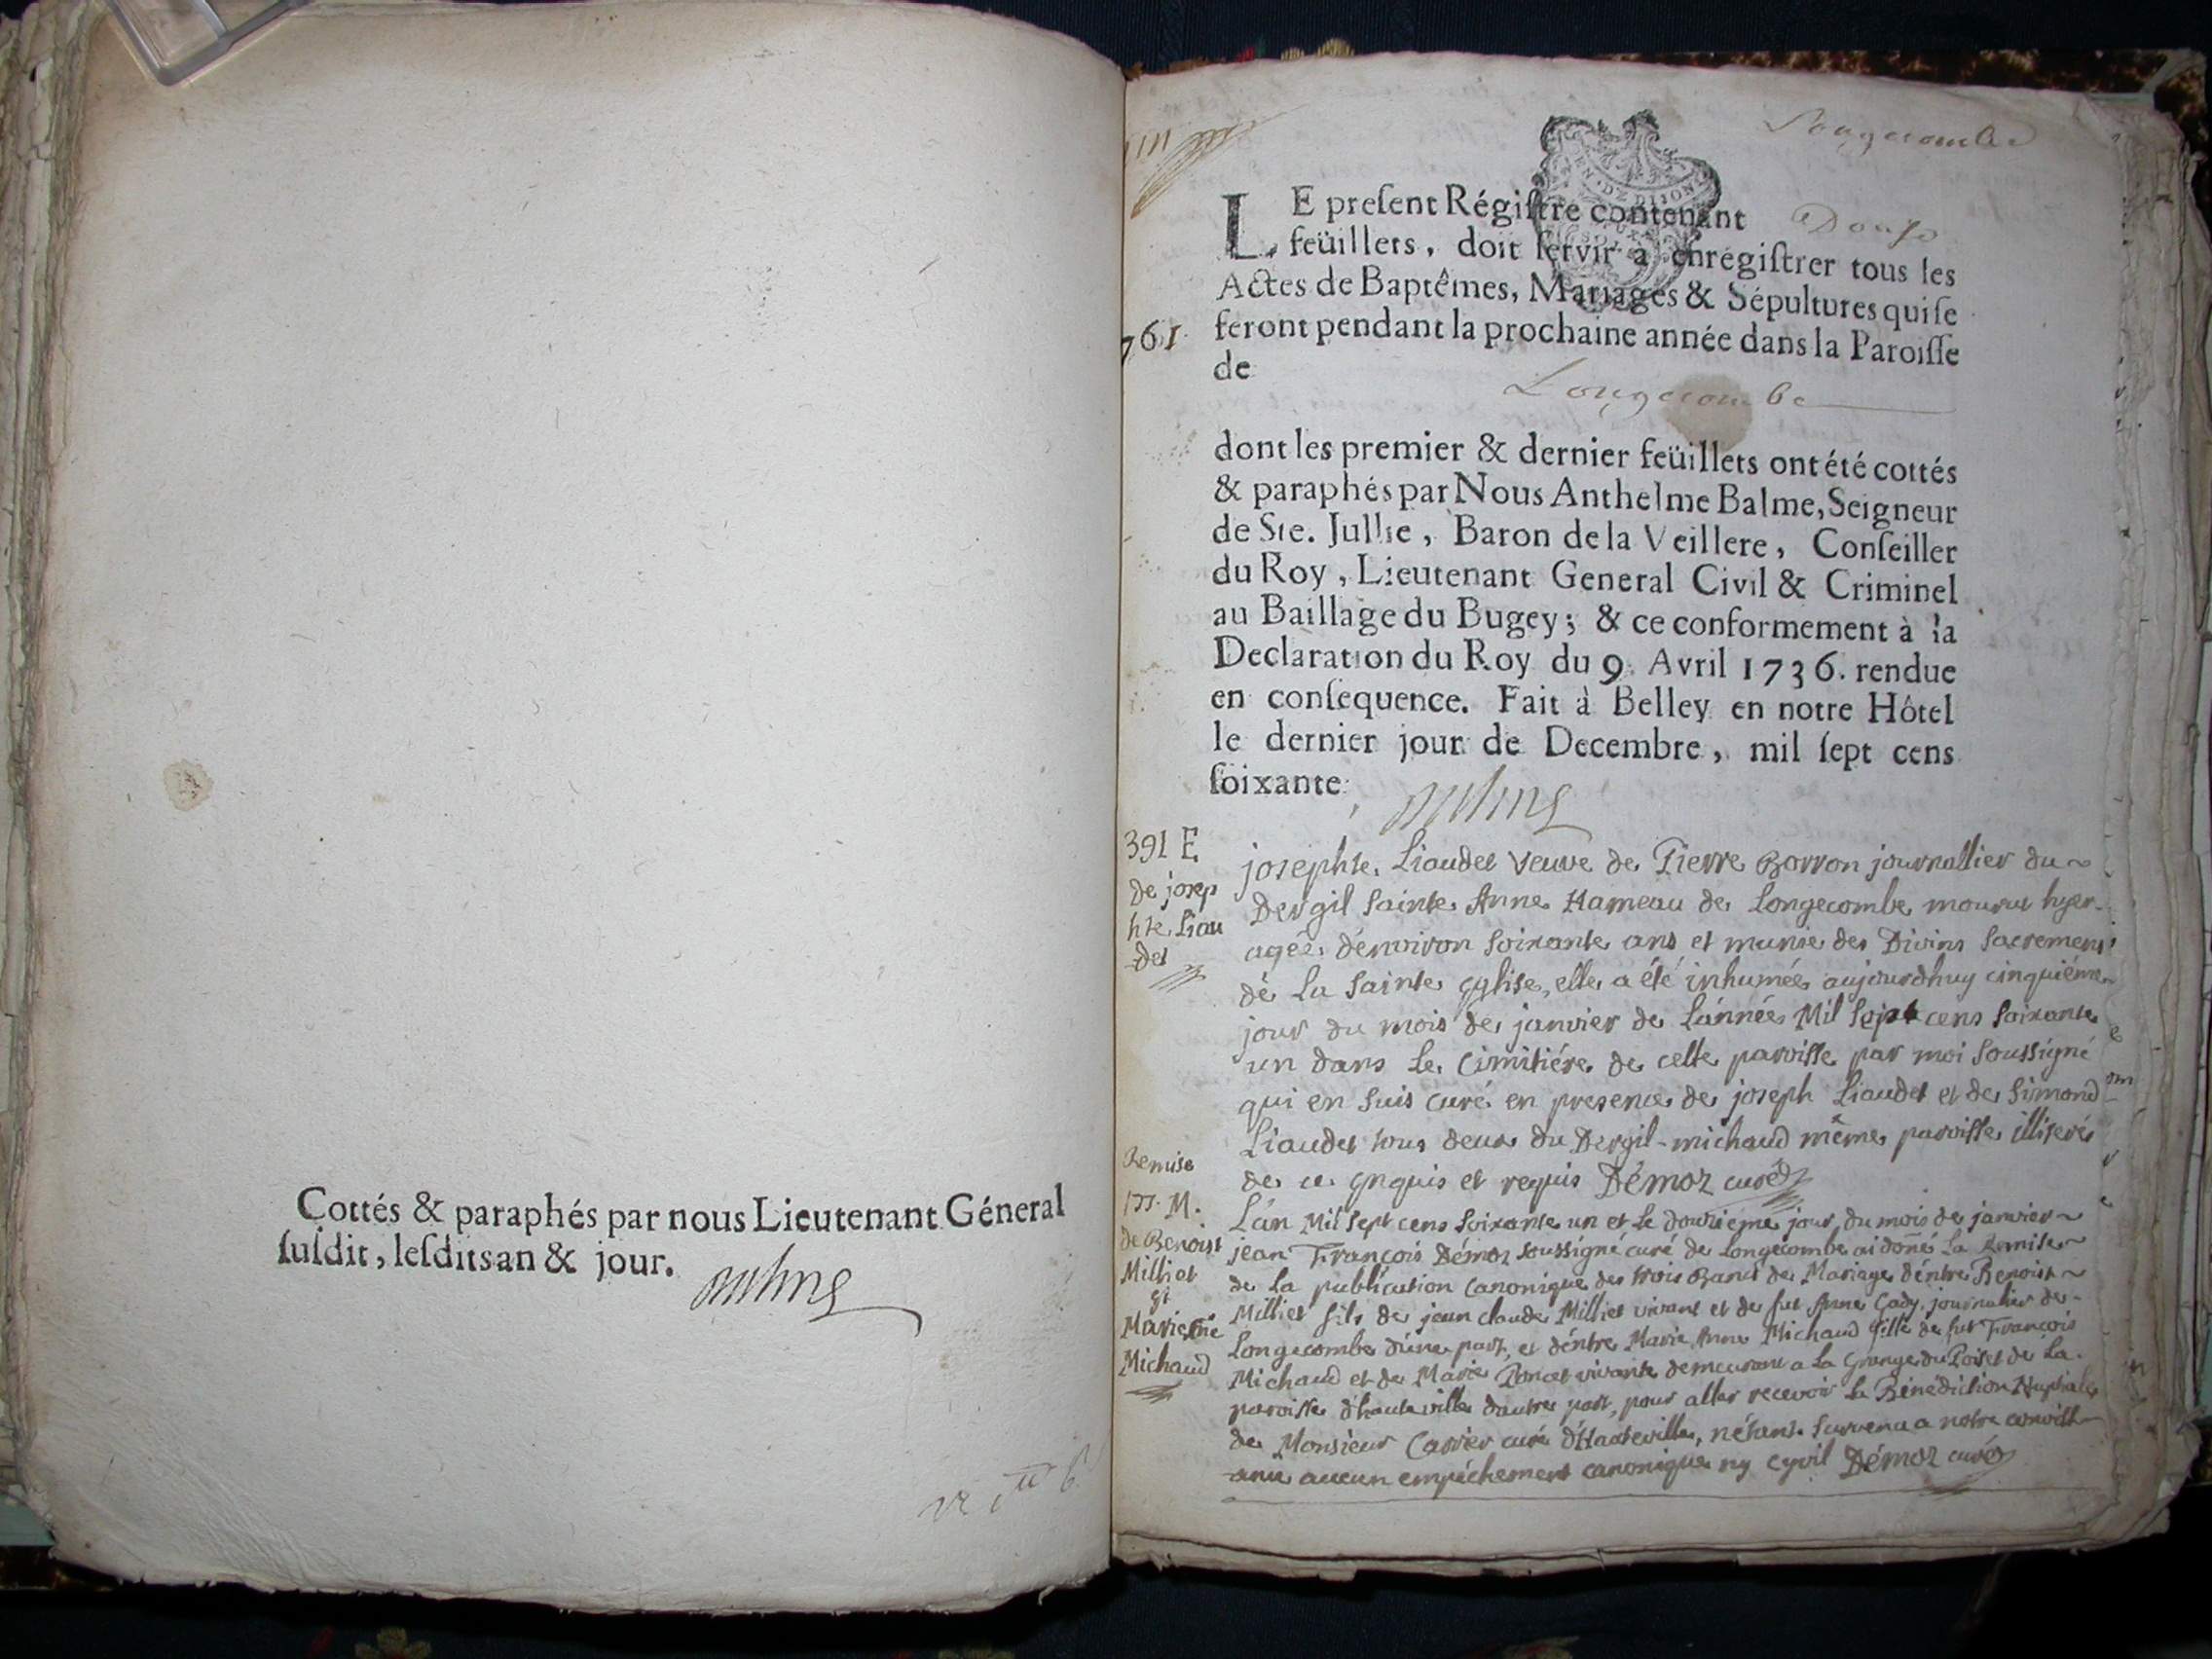 Cottés & paraphés par nous Lieutenant Géneral
ſuſdit, leſdits an & jour.
Longecombe
LE preſent Régiſtre contenant Douſe
feüillets, doit ſervir à enrégiſtrer tous les
Actes de Baptêmes, Mariages & Sépultures qui ſe
feront pendant la prochaine année dans la Paroiſſe
de Longecombe
761
dont les premier & dernier feüillets ont été cottés
& paraphés par Nous Anthelme Balme, Seigneur
de Ste. Jullie, Baron de la Veillere, Conſeiller
du Roy, Lieutenant General Civil & Criminel
au Baillage du Bugey; & ce conformement à la
Declaration du Roy du 9. Avril 1736. rendue
en conſequence. Fait à Belley en notre Hôtel
le dernier jour de Decembre, mil ſept cens
ſoixante
391 E
de josep
hte Liau
det
josephte Liaudet veuve de Pierre Borron journallier du
Dergil Sainte Anne Hameau de Longecombe mourut hyer
agée d'environ soixante ans et munie des Divins Sacremens
de La Sainte Eglise, elle a été inhumée aujourdhuy cinquiéme
jour du mois de janvier de L'année Mil Sept cens soixante
un dans Le Cimitiére de cette paroisse par moi soussigné
qui en suis curé en presence de joseph Liaudet et de Simond
Liaudet tous deux du Dergil-michaud même paroisse illiterés
de ce Enquis et requis Démoz curé
Remise
M.
de Benoist
Milliet
et
Marie
Michaud
L'an Mil Sept cens soixante un et Le douzieme jour du mois de janvier
jean François Démoz soussigné curé de Longecombe ai doñé La Remise
de La publication Canonique des trois Bans de Mariage d'entre Benoist
Milliet fils de jean claude Milliet vivant et de fut Anne Gady journalier de
Longecombe d'une part, et d'entre Marie Anne Michaud fille de fut François
Michaud et de Marie Poncet vivante demeurant a La Grange du Poiset de La
paroisse d'hauteville d'autre part, pour aller recevoir La Bénédiction Nuptiale
de Monsieur Carrier curé d'Hauteville, n'étant survenu a notre
aucun empéchement canonique ny cyvil Démoz curé